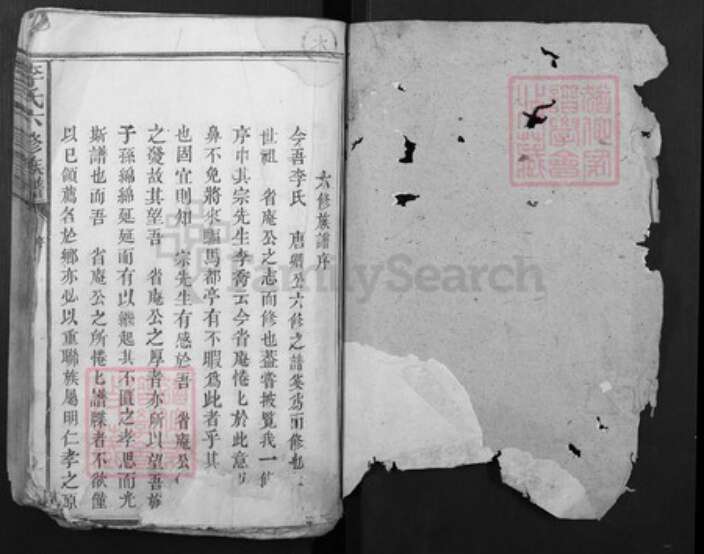 六修族譜序
今吾李氏 唐卿公六修之譜奚爲而修也
世祖 省庵公之志而修也蓋嘗披覽我一
序中其宗先生李喬云今省庵惓匕於此意
鼻不免將來駟馬都亭有不暇爲此者乎其
也固宜則知 宗先生有感於吾 省庵公
之發故其望吾 省庵公之厚者亦所以望吾
子孫綿綿延延而有以繼起其不匱之孝思而光
斯譜也而吾 省庵公之所惓匕譜牒者不欲僅
以已領薦名於鄉亦必以重聯族屬明仁孝之原
李氏六修族譜
序
FamilySearch